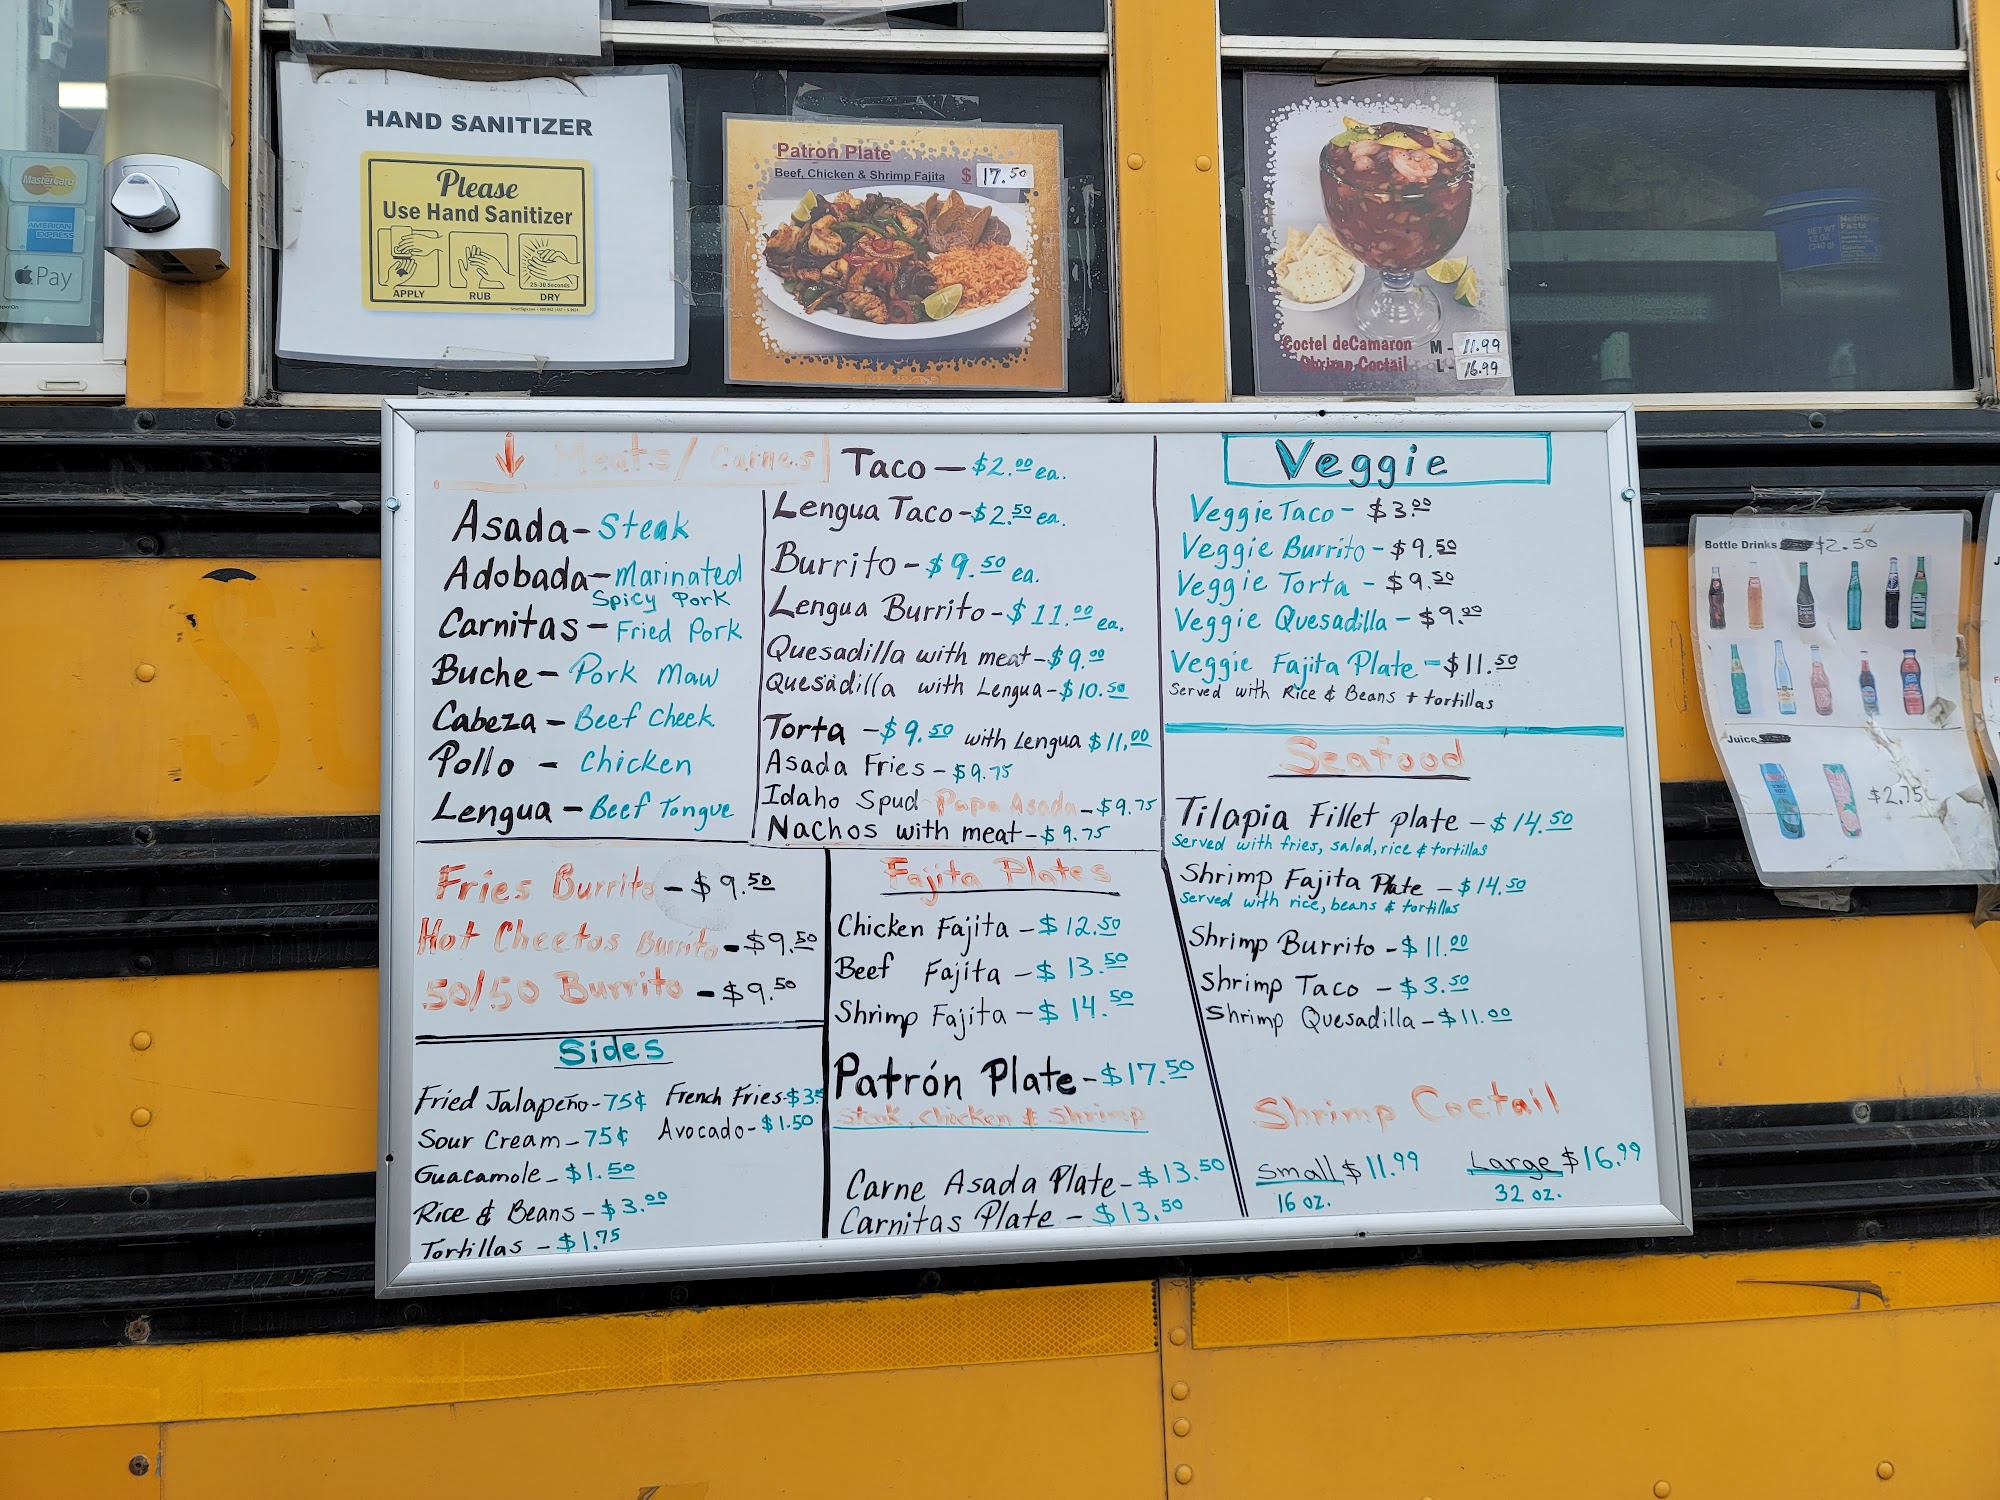 MasterCard
AMERICAN EXPRESS
Pay
HAND SANITIZER
Please
Use Hand Sanitizer
25-30 Seconds
APPLY
RUB
DRY
Patron Plate
Beef, Chicken & Shrimp Fajita $ 17.50
Coctel deCamaron M - 11.99
Shrimp Coctail L - 16.99
NET WT
12 OZ
(340 g)
Nutrition
Facts
Meats / Carnes
Asada - Steak
Adobada - Marinated
Spicy Pork
Carnitas - Fried Pork
Buche - Pork Maw
Cabeza - Beef Cheek
Pollo - Chicken
Lengua - Beef Tongue
Taco - $2.00 ea.
Lengua Taco - $2.50 ea.
Burrito - $9.50 ea.
Lengua Burrito - $11.00 ea.
Quesadilla with meat - $9.00
Quesadilla with Lengua - $10.50
Torta - $9.50 with Lengua $11.00
Asada Fries - $9.75
Idaho Spud Papa Asada - $9.75
Nachos with meat - $9.75
Veggie
Veggie Taco - $3.00
Veggie Burrito - $9.50
Veggie Torta - $9.50
Veggie Quesadilla - $9.00
Veggie Fajita Plate - $11.50
Served with Rice & Beans + tortillas
Seafood
Tilapia Fillet plate - $14.50
Served with fries, salad, rice & tortillas
Shrimp Fajita Plate - $14.50
Served with rice, beans & tortillas
Shrimp Burrito - $11.00
Shrimp Taco - $3.50
Shrimp Quesadilla - $11.00
Shrimp Coctail
Small $11.99
16 oz.
Large $16.99
32 oz.
Fries Burrito - $9.50
Hot Cheetos Burrito - $9.50
50/50 Burrito - $9.50
Sides
Fried Jalapeño - 75¢
Sour Cream - 75¢
Guacamole - $1.50
Rice & Beans - $3.00
Tortillas - $1.75
French Fries - $3.
Avocado - $1.50
Fajita Plates
Chicken Fajita - $12.50
Beef Fajita - $13.50
Shrimp Fajita - $14.50
Patrón Plate - $17.50
Steak, Chicken & Shrimp
Carne Asada Plate - $13.50
Carnitas Plate - $13.50
Bottle Drinks $2.50
Juice
$2.75